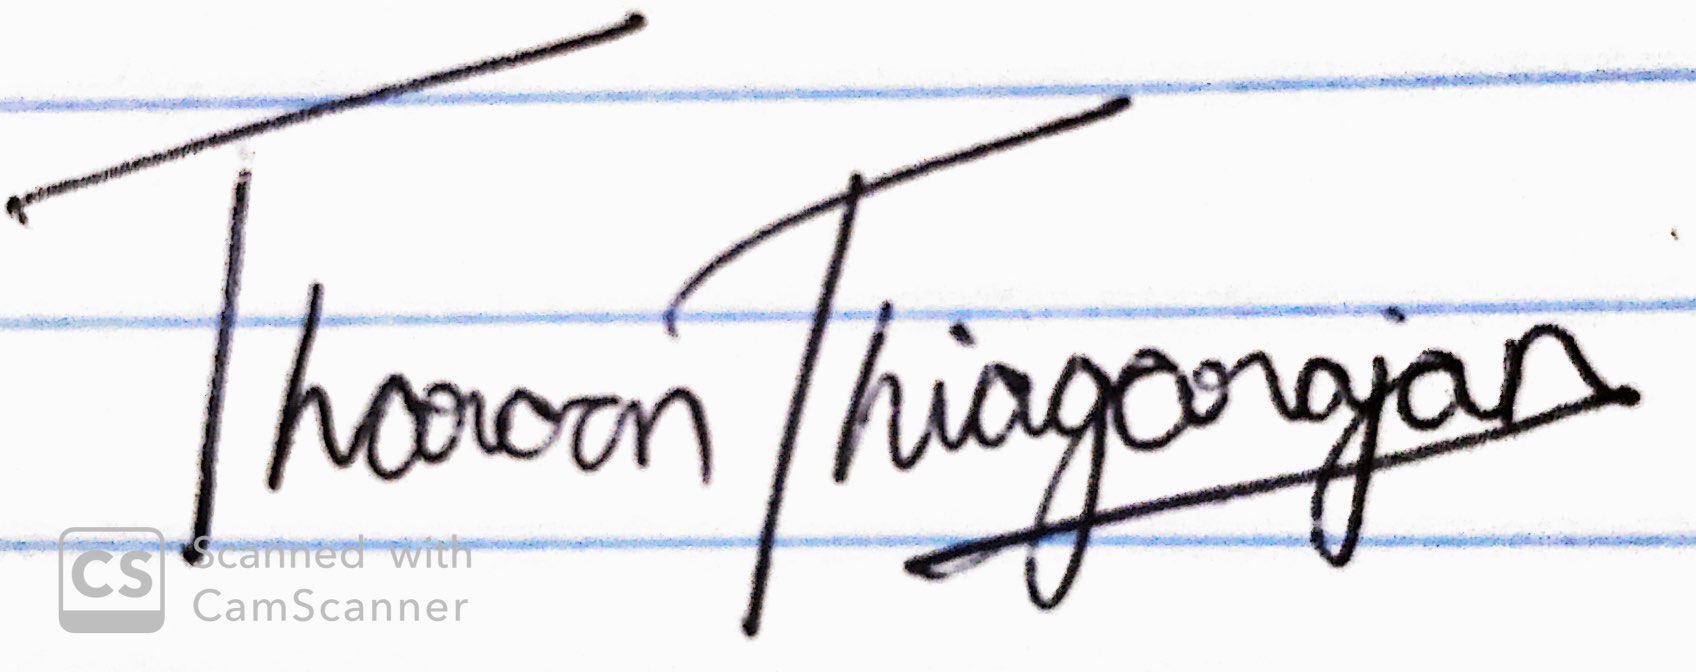 Tharoon Thiagarajan
CS Scanned with
CamScanner